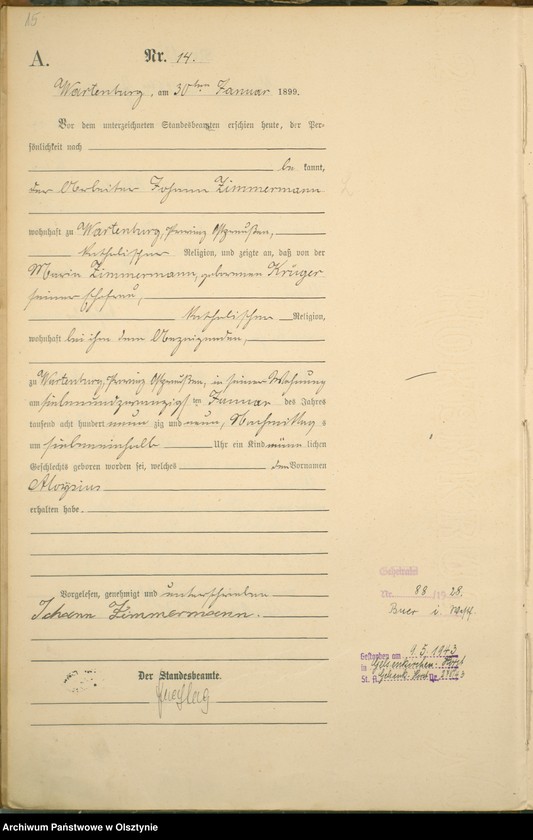 15
A. Nr. 14.
Wartenburg, am 30ten Januar 1899.
Vor dem unterzeichneten Standesbeamten erschien heute, der Per-
sönlichkeit nach
be kannt,
der Arbeiter Johann Zimmermann
wohnhaft zu Wartenburg, Provinz Ostpreußen,
katholischer Religion, und zeigte an, daß von der
Maria Zimmermann, geborenen Krüger
seiner Ehefrau,
katholischer Religion,
wohnhaft bei ihm dem Anzeigenden,
zu Wartenburg, Provinz Ostpreußen, in seiner Wohnung
am siebenundzwanzigsten Januar des Jahres
tausend acht hundert neun zig und neun, Nachmittag s
um siebeneinhalb Uhr ein Kind männ lichen
Geschlechts geboren worden sei, welches den Vornamen
Aloysius
erhalten habe.
Vorgelesen, genehmigt und unterschrieben
Johann Zimmermann.
Der Standesbeamte.
Geheiratet
Nr. 88 /19 28.
Buer i. Westf.
Gestorben am 9.5.1943
in Gelsenkirchen-Horst
St. A.
Archiwum Państwowe w Olsztynie